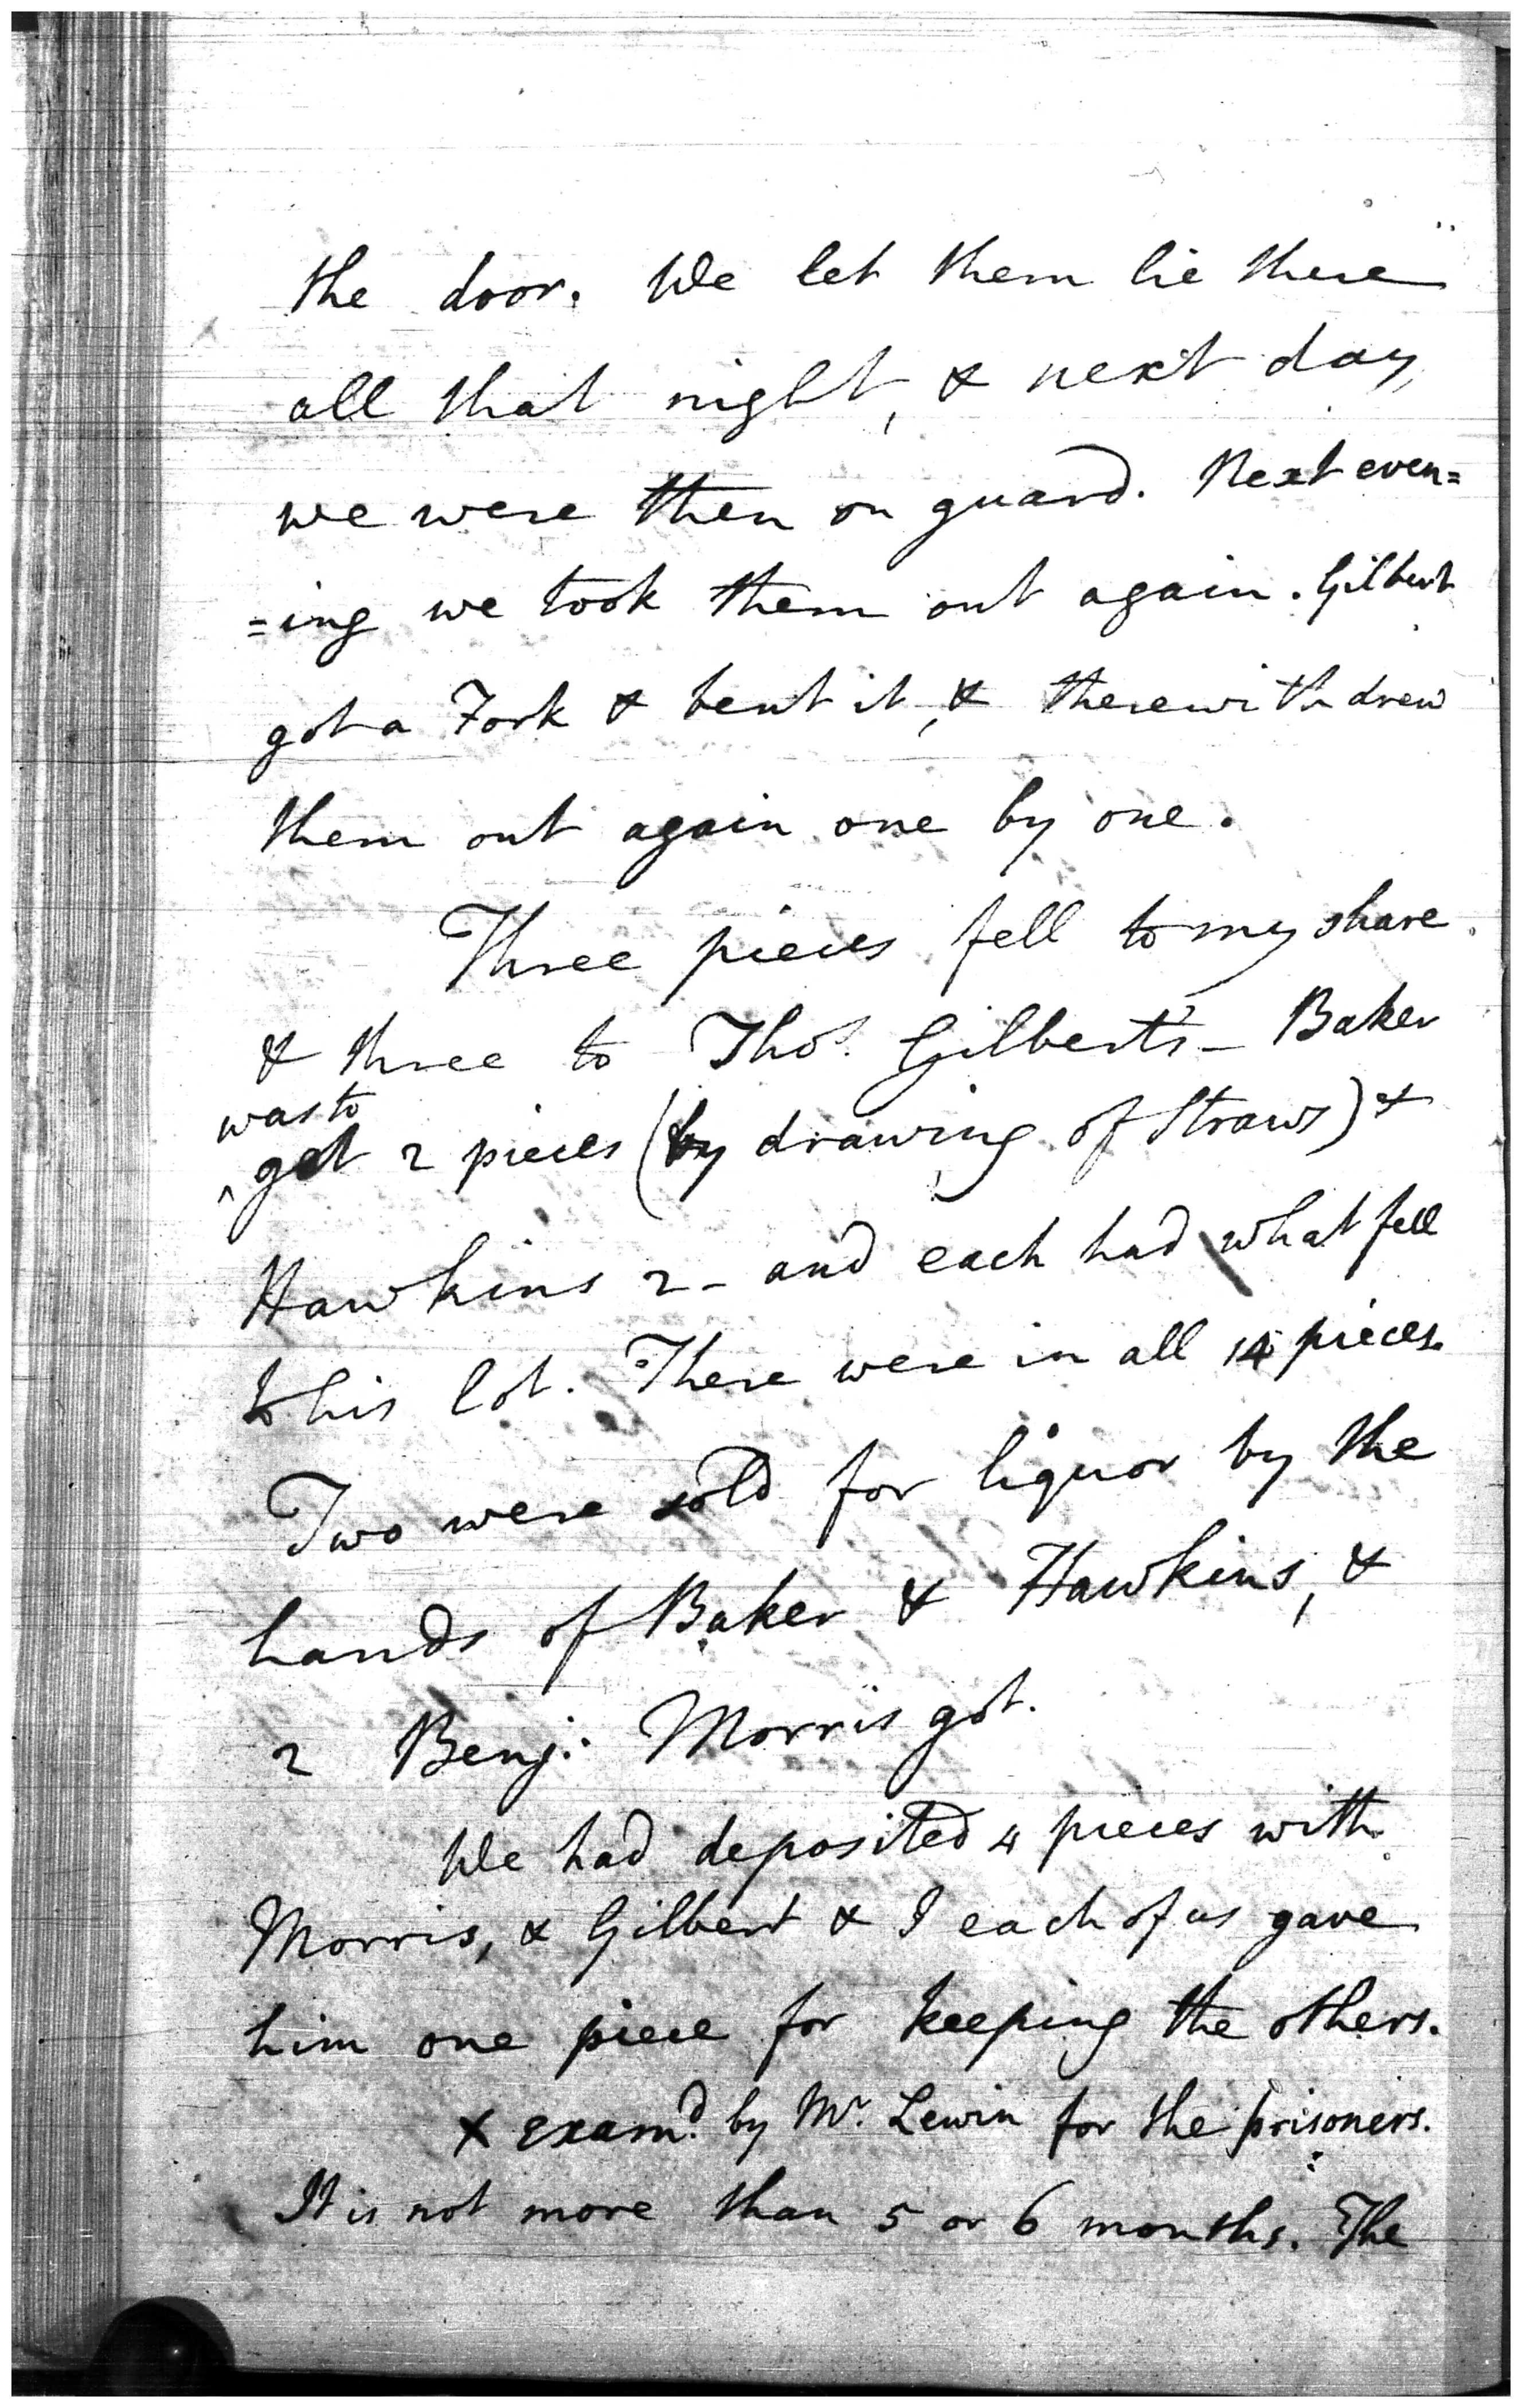 the door. We let them lie there
all that night, & next day,
we were then on guard. Next even=
=ing we took them out again. Gilbert
got a Fork & bent it, & therewith drew
them out again one by one.
Three pieces fell to my share
& three to Thos. Gilbert's – Baker
was to
^ get 2 pieces (by drawing of Straws) &
Hawkins 2 – and each had what fell
to his lot. There were in all 14 pieces.
Two were sold for liquor by the
hands of Baker & Hawkins, &
2 Benj: Morris got.
We had deposited 4 pieces with
Morris, & Gilbert & I each of us gave
him one piece for keeping the others.
X examd. by Mr. Lewin for the prisoners.
It is not more than 5 or 6 months. The